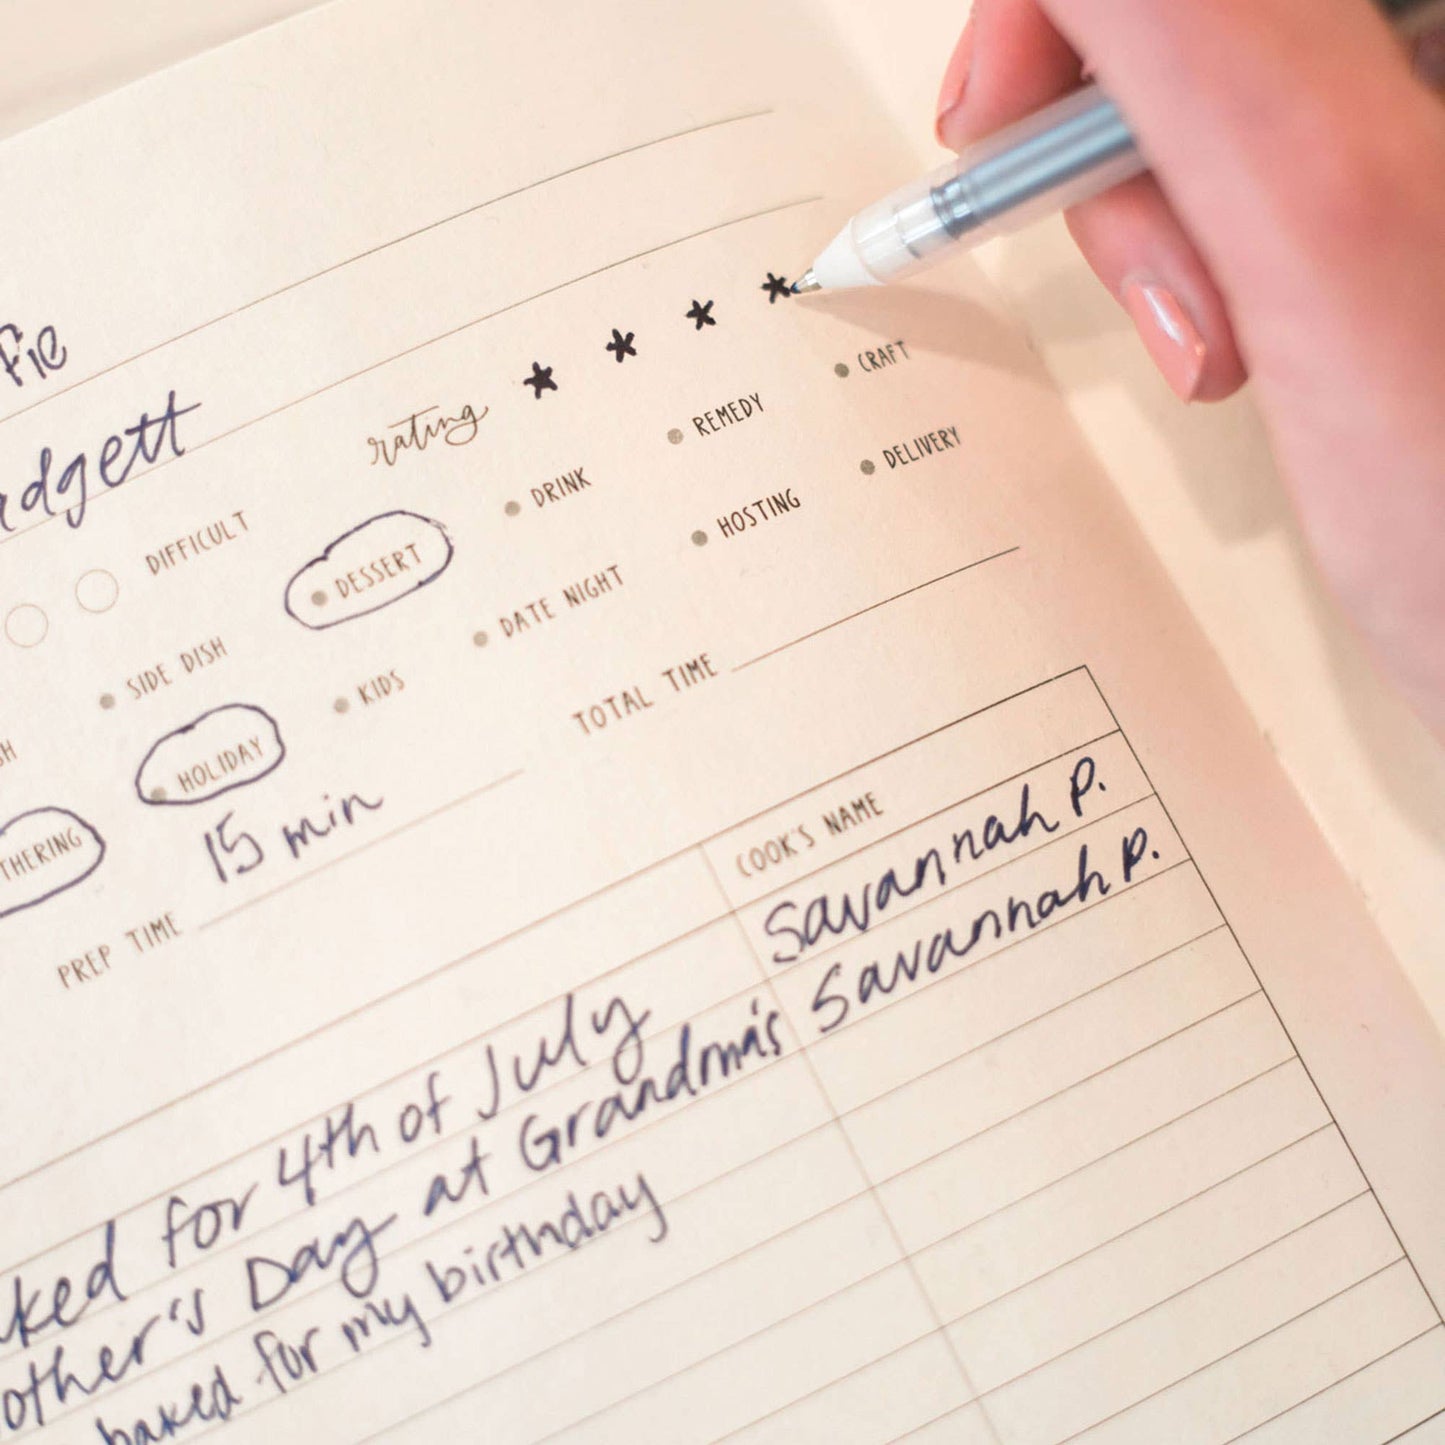 Pie
adgett
rating * * * *
DIFFICULT
SIDE DISH DESSERT DRINK REMEDY CRAFT
THERING HOLIDAY KIDS DATE NIGHT HOSTING DELIVERY
PREP TIME 15 min TOTAL TIME
COOK'S NAME
ked for 4th of July Savannah P.
other's Day at Grandma's Savannah P.
baked for my birthday